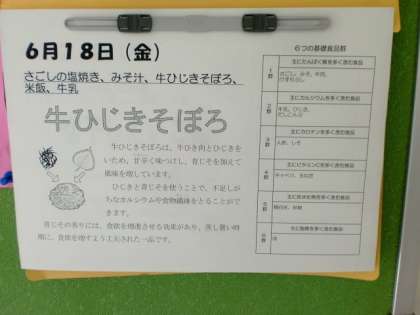 6月18日（金）
さごしの塩焼き、みそ汁、牛ひじきそぼろ、
米飯、牛乳
牛ひじきそぼろ
牛ひじきそぼろは、牛ひき肉とひじきを
いため、甘辛く味つけし、青じそを加えて
風味を増しています。
ひじきと青じそを使うことで、不足しが
ちなカルシウムや食物繊維をとることがで
きます。
青じその香りには、食欲を増進させる効果があり、蒸し暑い時
期に、食欲を増すよう工夫された一品です。
６つの基礎食品群
主にたんぱく質を多く含む食品
1群
さごし、みそ、牛肉、
主にカルシウムを多く含む食品
2群
牛乳、ひじき、
主にカロテンを多く含む食品
3群
人参、しそ
主にビタミンCを多く含む食品
4群
主に炭水化物を多く含む食品
5群
主に脂肪を多く含む食品
6群
油